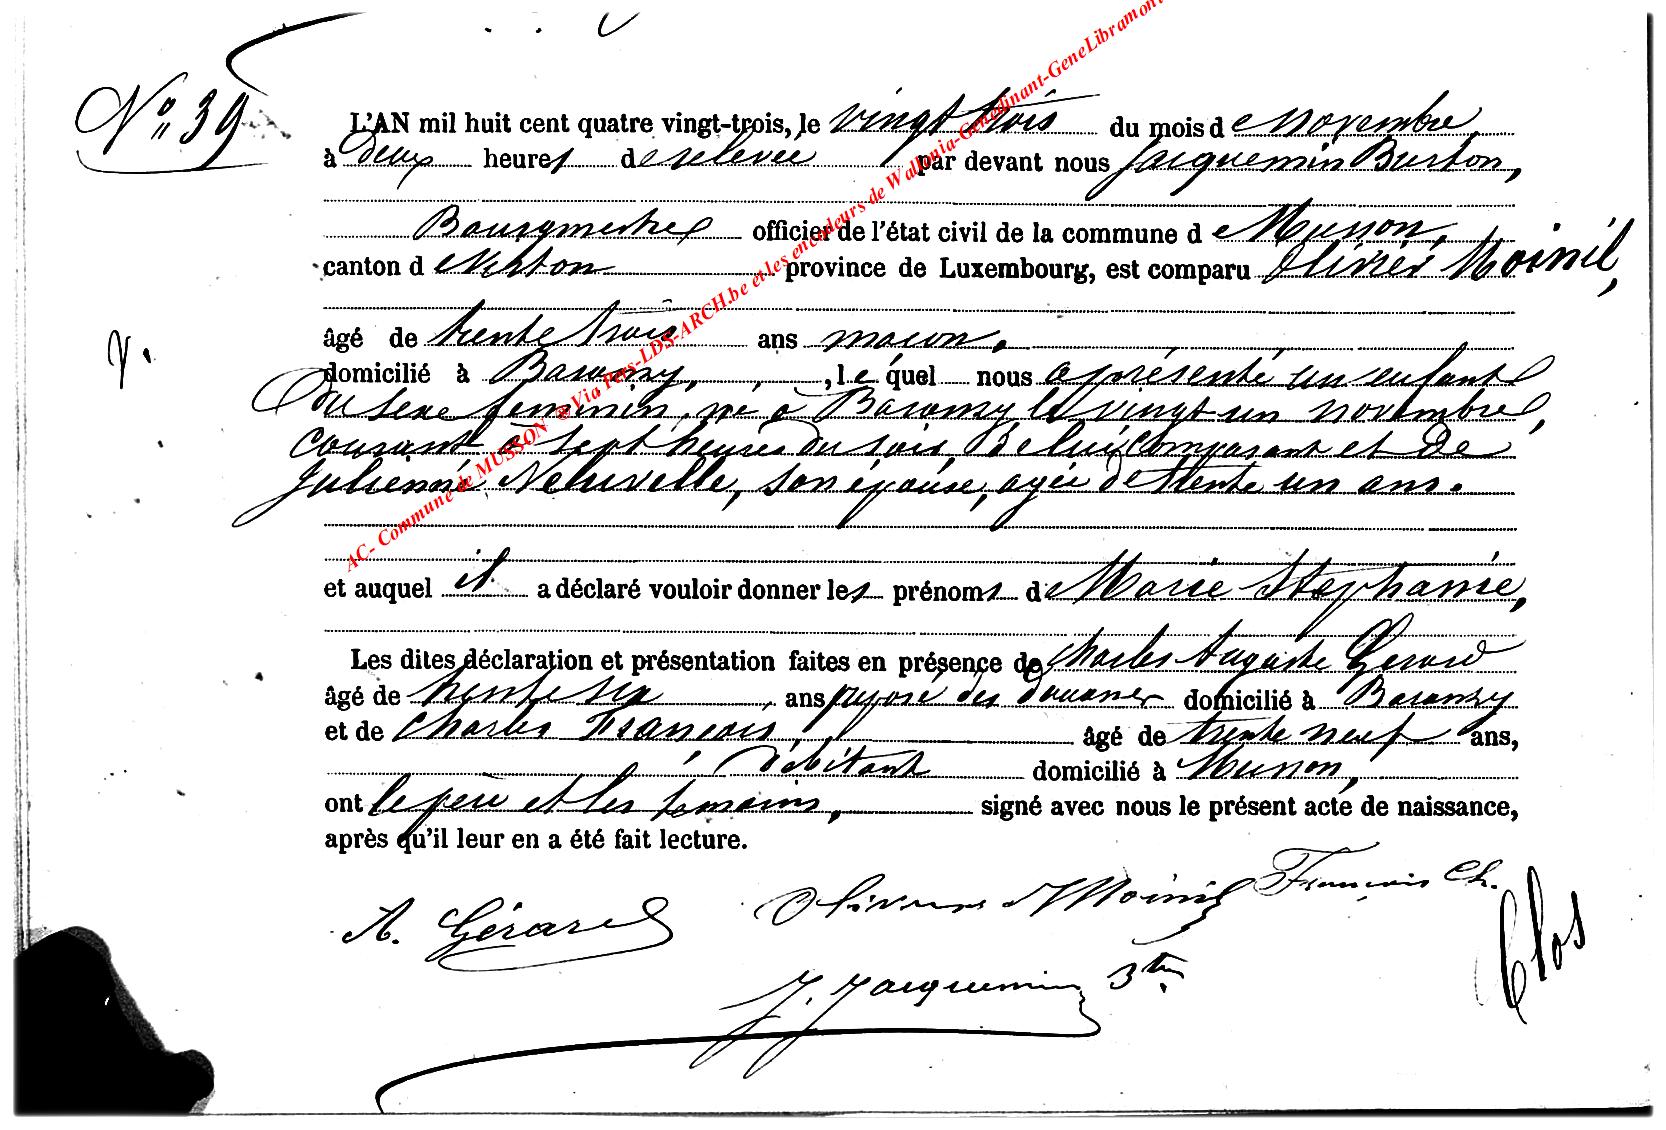 N° 39
L'AN mil huit cent quatre vingt-trois, le vingt trois du mois de novembre
à deux heures de relevée par devant nous Jacquemin Burton,
Bourgmestre officier de l'état civil de la commune de Musson,
canton de Virton province de Luxembourg, est comparu Olivier Moinil,
âgé de trente trois ans maçon,
domicilié à Baranzy, lequel nous a présenté un enfant
du sexe féminin, né à Baranzy le vingt un novembre,
courant à sept heures du soir, de lui comparant et de
Julienne Neuvelle, son épouse, agée de trente un ans.
et auquel il a déclaré vouloir donner les prénoms de Marie Stéphanie,
Les dites déclaration et présentation faites en présence de Charles Auguste Gérard
âgé de trente six ans préposé des douanes domicilié à Baranzy
et de Charles François, âgé de trente neuf ans,
débitant domicilié à Musson,
ont le père et les témoins, signé avec nous le présent acte de naissance,
après qu'il leur en a été fait lecture.
A. Gérard Olivier Moinil François Ch.
J. Jacquemin Btn
Clos
AC- Commune de MUSSON @ Via Pers-LDS-ARCH.be et les encodeurs de Wallonia-Genedinant-GeneLibramont